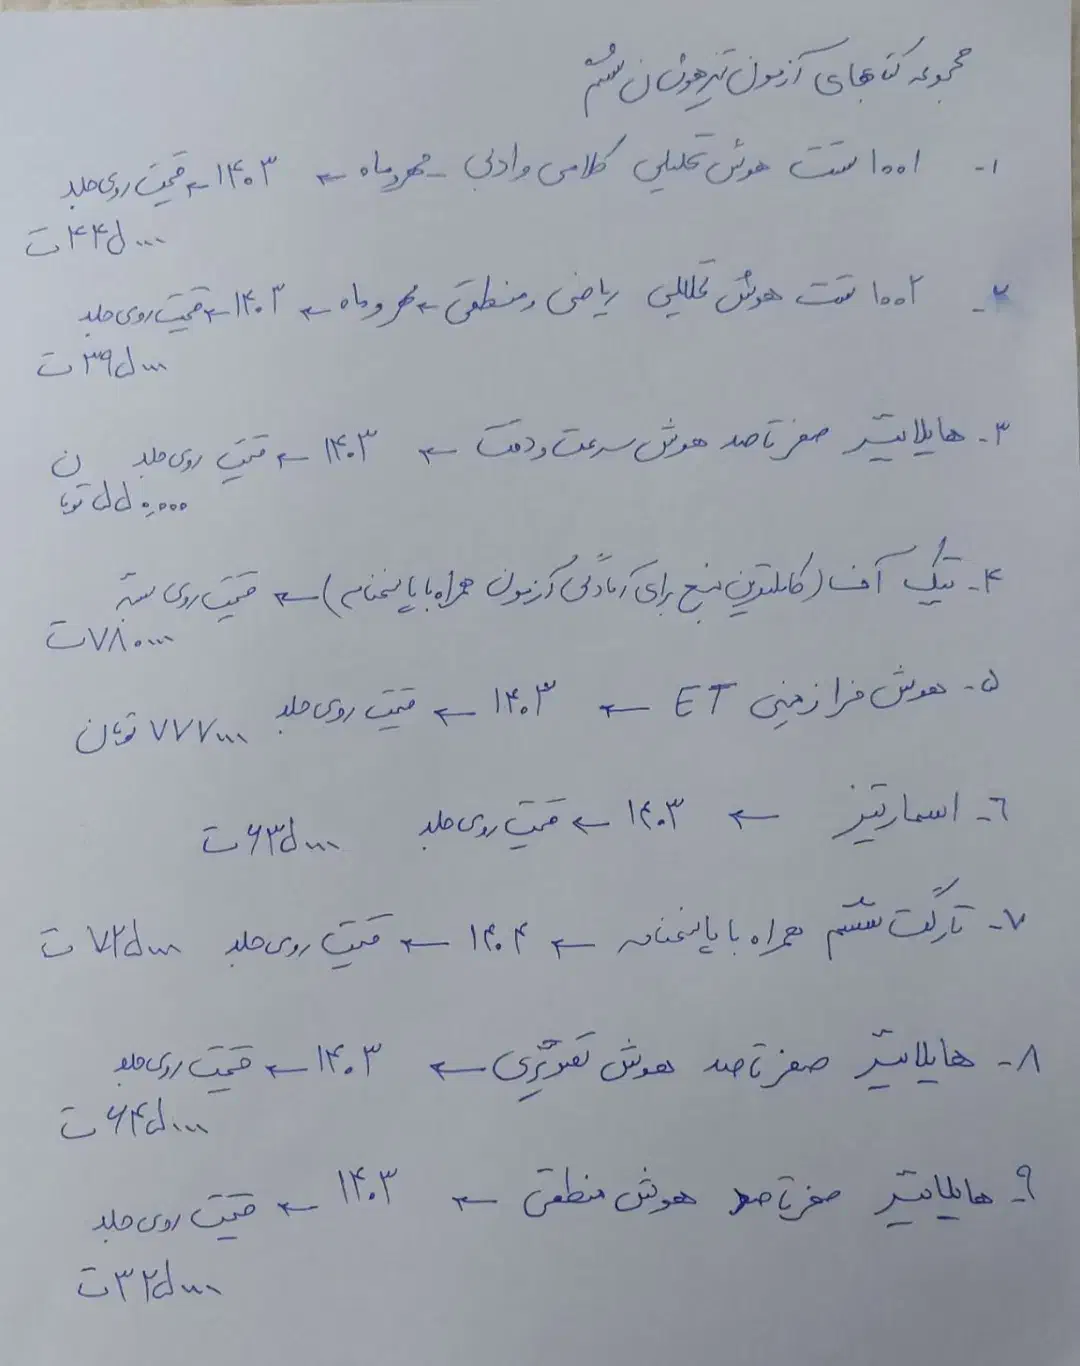 مجموعه کتابهای آزمون تیزهوشان ششم
۱- ۱۰۰۱ تست هوش تحلیلی کلامی و ادبی - مهروماه ← ۱۴۰۳ ← قیمت روی جلد
۴۴۵۰۰۰ ت
۲- ۱۰۰۲ تست هوش تحلیلی ریاضی و منطقی ← مهروماه ← ۱۴۰۳ ← قیمت روی جلد
۳۹۵۰۰۰ ت
۳- هایلایتر صفر تا صد هوش سرعت و دقت ← ۱۴۰۳ ← قیمت روی جلد
۵۵۰,۰۰۰ تومان
۴- تیک آف (کاملترین منبع برای آمادگی آزمون همراه با پاسخنامه) ← قیمت روی
۷۸۰۰۰۰ ت
۵- هوش فرازمینی ET ← ۱۴۰۳ ← قیمت روی جلد
۷۷۷۰۰۰ تومان
۶- اسمارتیز ← ۱۴۰۳ ← قیمت روی جلد ۶۳۵۰۰۰ ت
۷- تارگت ششم همراه با پاسخنامه ← ۱۴۰۴ ← قیمت روی جلد ۷۲۵۰۰۰ ت
۸- هایلایتر صفر تا صد هوش تصویری ← ۱۴۰۳ ← قیمت روی جلد
۶۴۵۰۰۰ ت
۹- هایلایتر صفر تا صد هوش منطقی ← ۱۴۰۳ ← قیمت روی جلد
۳۲۵۰۰۰ ت